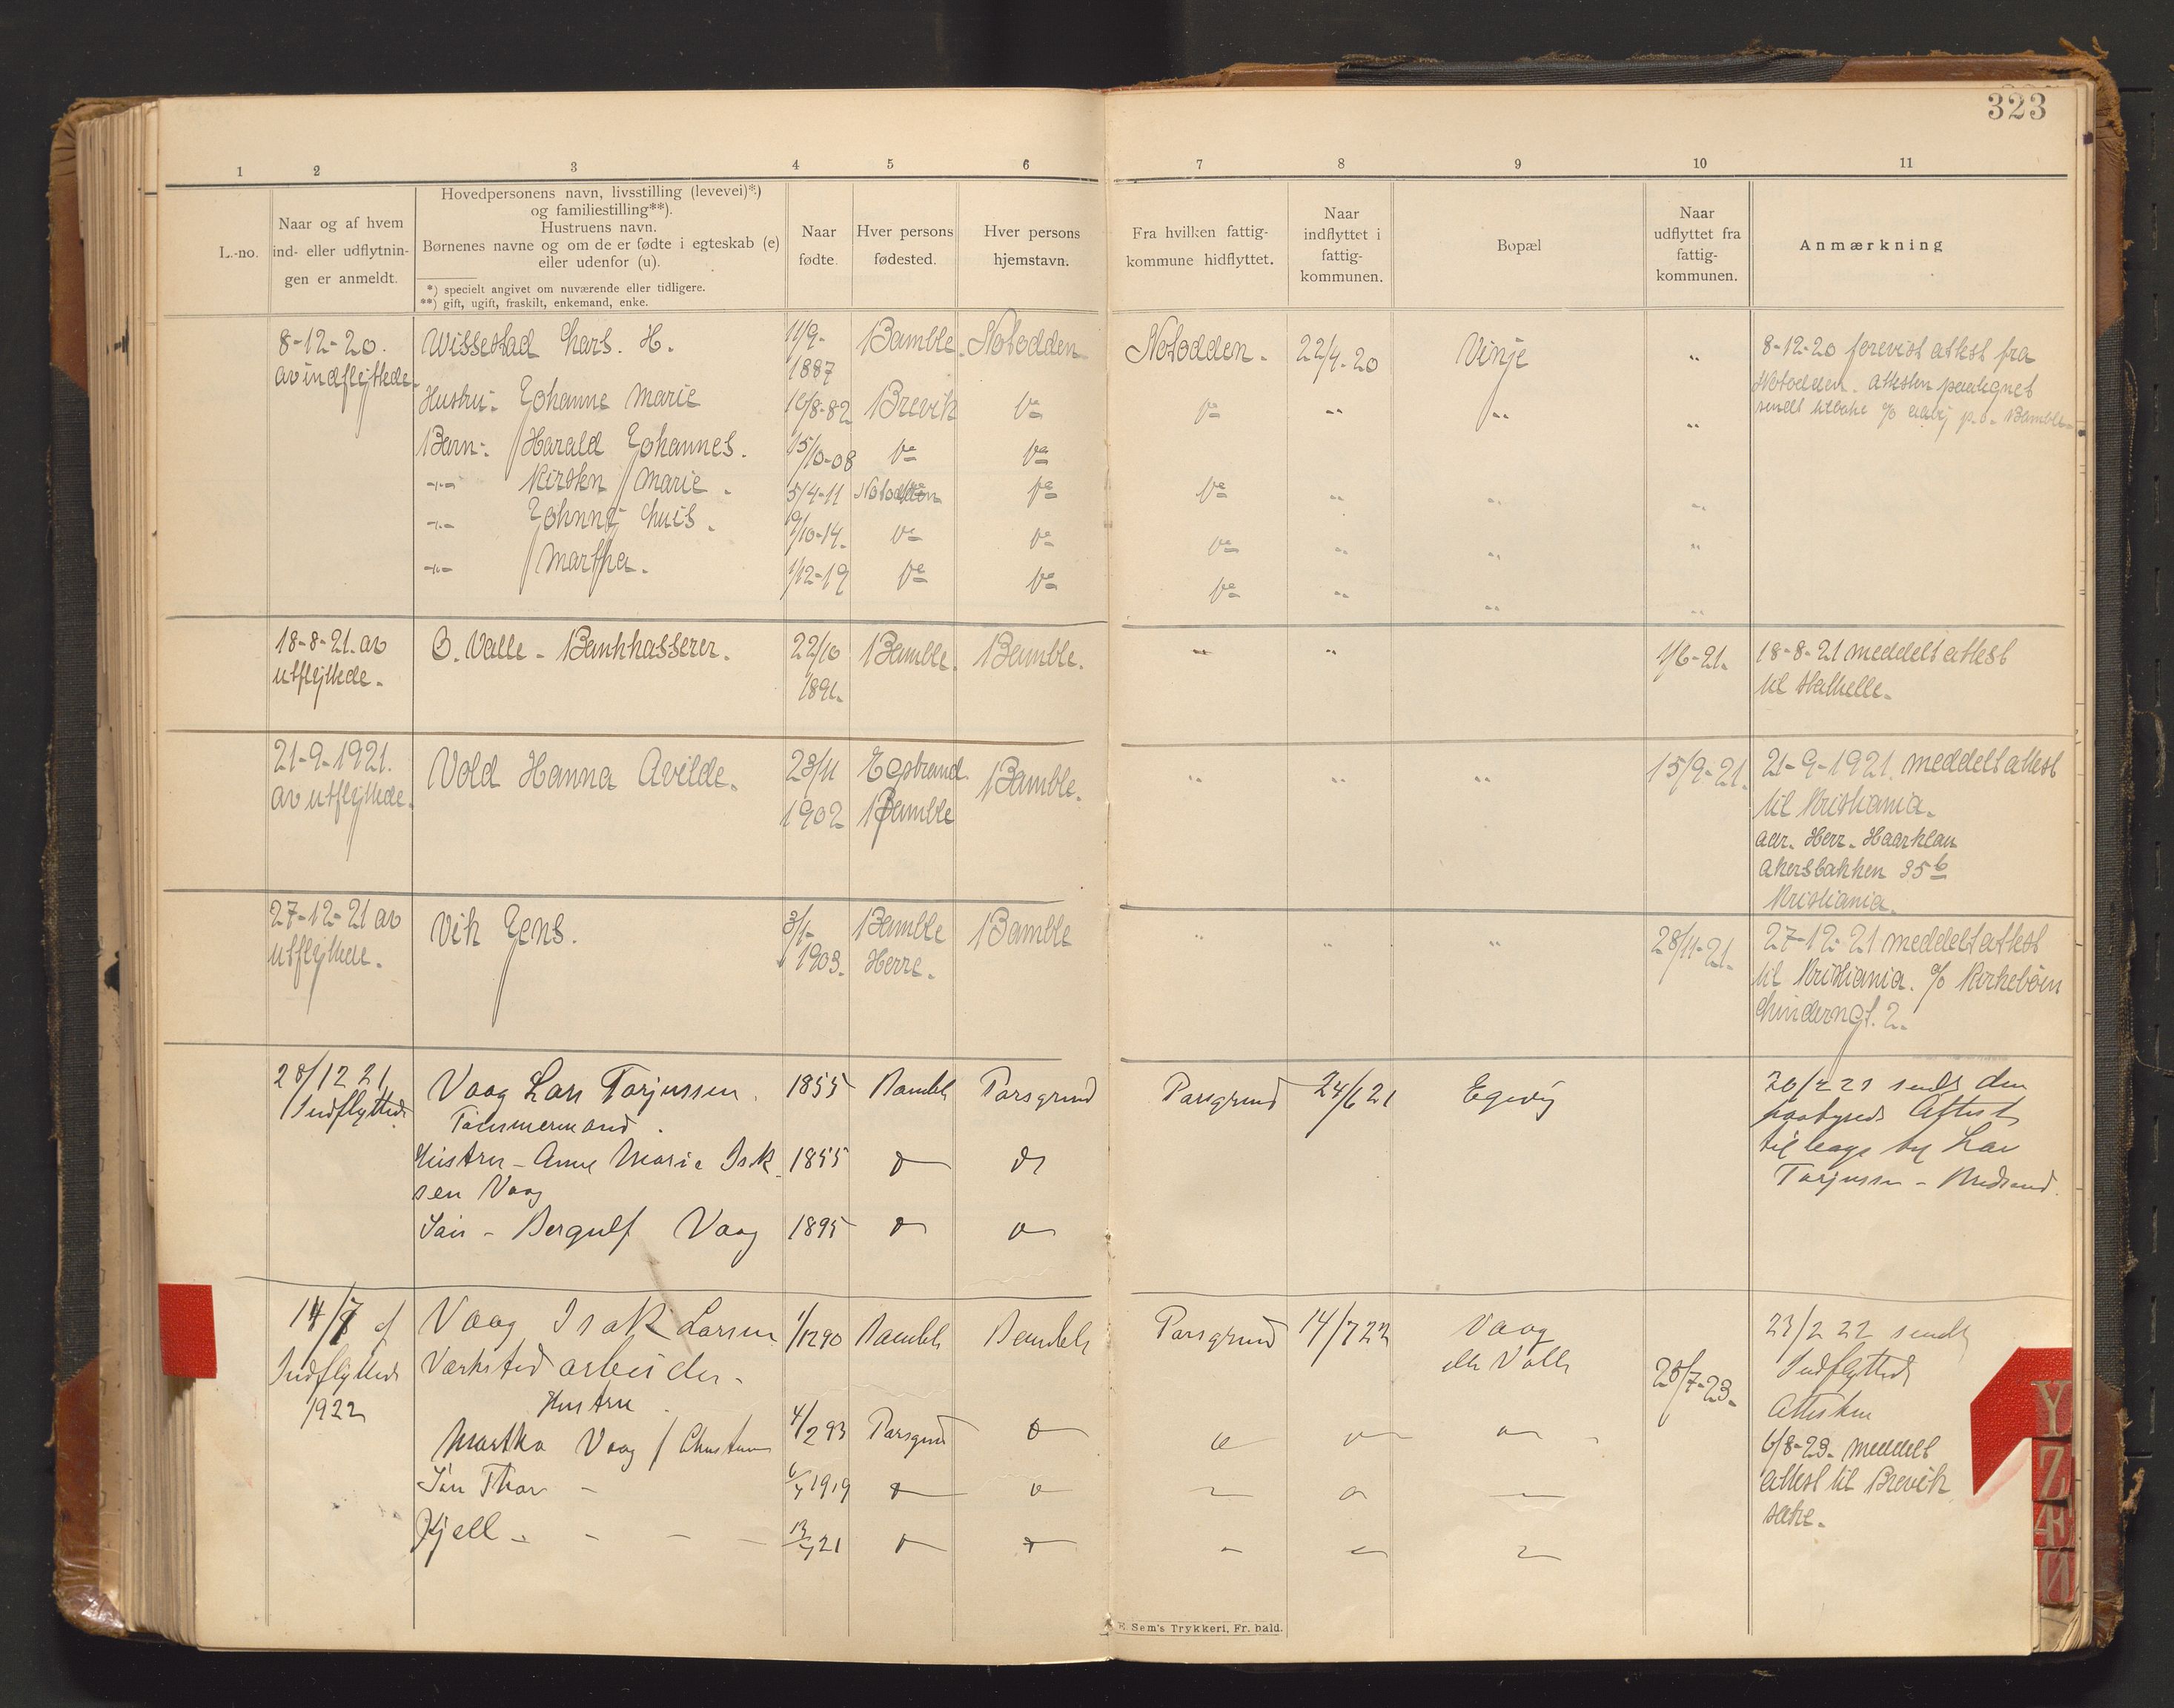 323
1 2 3 4 5 6 7 8 9 10 11
L.-no.
Naar og af hvem
ind- eller udflytnin-
gen er anmeldt.
Hovedpersonens navn, livsstilling (levevei)*)
og familiestilling**).
Hustruens navn.
Børnenes navne og om de er fødte i egteskab (e)
eller udenfor (u).
*) specielt angivet om nuværende eller tidligere.
**) gift, ugift, fraskilt, enkemand, enke.
Naar
fødte.
Hver persons
fødested.
Hver persons
hjemstavn.
Fra hvilken fattig-
kommune hidflyttet.
Naar
indflyttet i
fattig-
kommunen.
Bopæl
Naar
udflyttet fra
fattig-
kommunen.
Anmærkning
8-12-20.
av indflyttede.
Wissestad Lars. H.
11/9-
1887
Bamble.
Notodden
Notodden.
22/4-20
Vinje
"
8-12-20 forevist attest fra
Notodden. Attesten paategnet
sendt tilbake
Bamble
Hustru: Johanne Marie
16/8-82
Brevik
Do
Do
"
"
"
Barn: Harald Johannes.
15/10-08
Do
Do
-"- Kirsten Marie.
5/4-11
Notodden
Do
Do
"
"
"
-"- Johnny Luis.
9/10-14.
Do
Do
Do
"
"
"
-"- Martha.
1/12-19
Do
Do
Do
"
"
"
18-8-21. av
utflyttede.
O. Valle - Bankkasserer.
22/10
1891.
Bamble.
Bamble.
"
"
1/6-21.
18-8-21 meddelt attest
til Stathelle.
21-9-1921.
av utflyttede.
Vold Hanna Avilde.
23/11
1902
Egstrand
Bamble
Bamble.
"
"
"
15/9-21.
21-9-1921. meddelt attest
til Kristiania.
adr. Herr. Haarklau
Akersbakken 35b
Kristiania.
27-12-21 av
utflyttede.
Vik Jens.
3/1-
1903.
Bamble
Herre.
Bamble
"
"
"
28/11-21.
27-12-21 meddelt attest
til Kristiania. c/o Kirkebøen
Linderngt. 2.
28/12 21
Indflyttede
Vaag Lars Torjussen.
Tømmermand.
1855
Bamble
Porsgrund
Porsgrund
24/6 21
sendt den
Attest
Torjussen -
Hustru - Anne Marie Isak
sen Vaag
1855
Søn - Bergulf Vaag
1895
14/7 af
Indflyttede
1922
Vaag Isak Larsen
Værksted arbeider -
1/12 90
Bamble
Bamble
Porsgrund
14/7 22
Vaag
Valle
28/7-23.
23/2 22 sendt
Indflyttede
Attesten
6/8-23. meddelt
attest til Brevik
Hustru.
Martha Vaag f
4/2 93
Porsgrund
Søn Thor -
1919
Kjell - - - -
21
E. Sem's Trykkeri, Fr. hald.
Y
Z
Æ
Ø